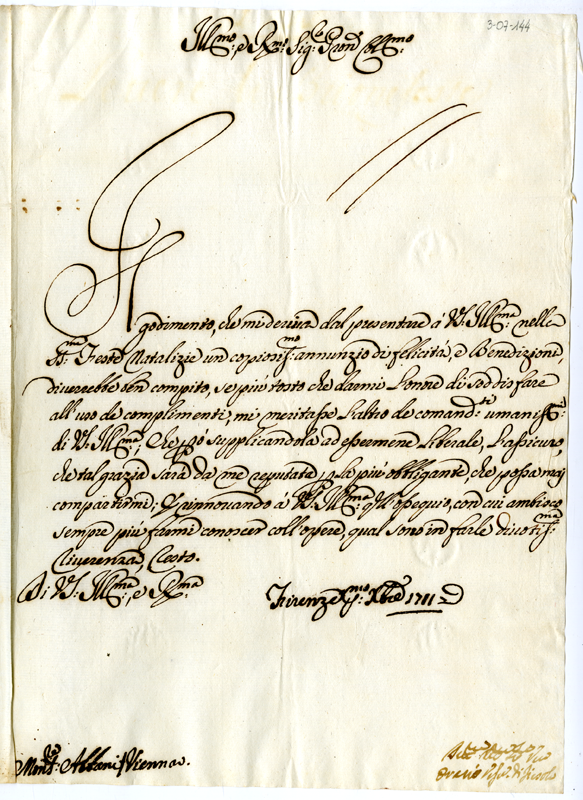 3-07-144
Ill:mo, e R:mo Sig:re Pron: Col:mo
Il godimento, che mi deriva dal presentare á V.S. Ill:ma nelle
S:te Feste Natalizie un copiosis:mo annunzio di felicità, e Benedizioni,
diverrebbe ben compito, se più tosto che darmi l'onore di soddisfare
all'uso de complimenti, mi meritasse l'altro de comand:ti umaniss:i
di V.S. Ill:ma; Che però supplicandola ad essermene liberale, l'assicuro,
che tal grazia sarà da me reputata p la più obbligante, che possa mai
compartirmi; E rinnovando á V.S. Ill:ma q:ll'ossequio, con cui ambisco
sempre più farmi conoscer coll'opere, qual sono in farle divotis:ma
riverenza, resto.
Di V.S. Ill:ma, e R:ma
Firenze Xbre 1711
Mons:re Albani Vienna.